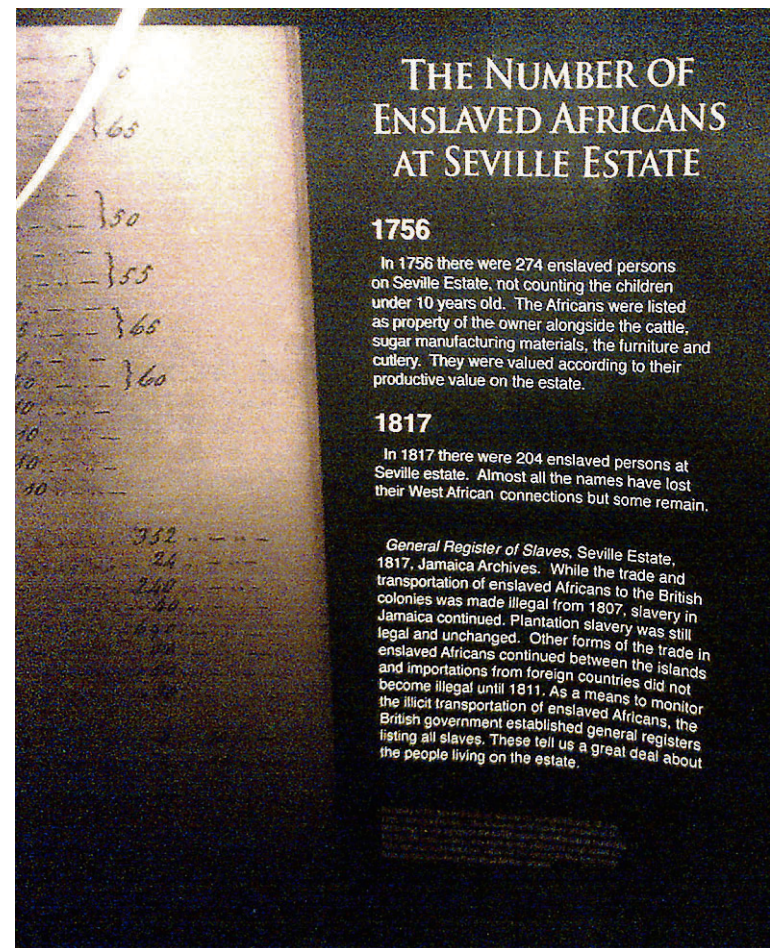 THE NUMBER OF
ENSLAVED AFRICANS
AT SEVILLE ESTATE
1756
In 1756 there were 274 enslaved persons
on Seville Estate, not counting the children
under 10 years old. The Africans were listed
as property of the owner alongside the cattle,
sugar manufacturing materials, the furniture and
cutlery. They were valued according to their
productive value on the estate.
1817
In 1817 there were 204 enslaved persons at
Seville estate. Almost all the names have lost
their West African connections but some remain.
General Register of Slaves, Seville Estate,
1817, Jamaica Archives. While the trade and
transportation of enslaved Africans to the British
colonies was made illegal from 1807, slavery in
Jamaica continued. Plantation slavery was still
legal and unchanged. Other forms of the trade in
enslaved Africans continued between the islands
and importations from foreign countries did not
become illegal until 1811. As a means to monitor
the illicit transportation of enslaved Africans, the
British government established general registers
listing all slaves. These tell us a great deal about
the people living on the estate.
65
50
55
65
60
352
24